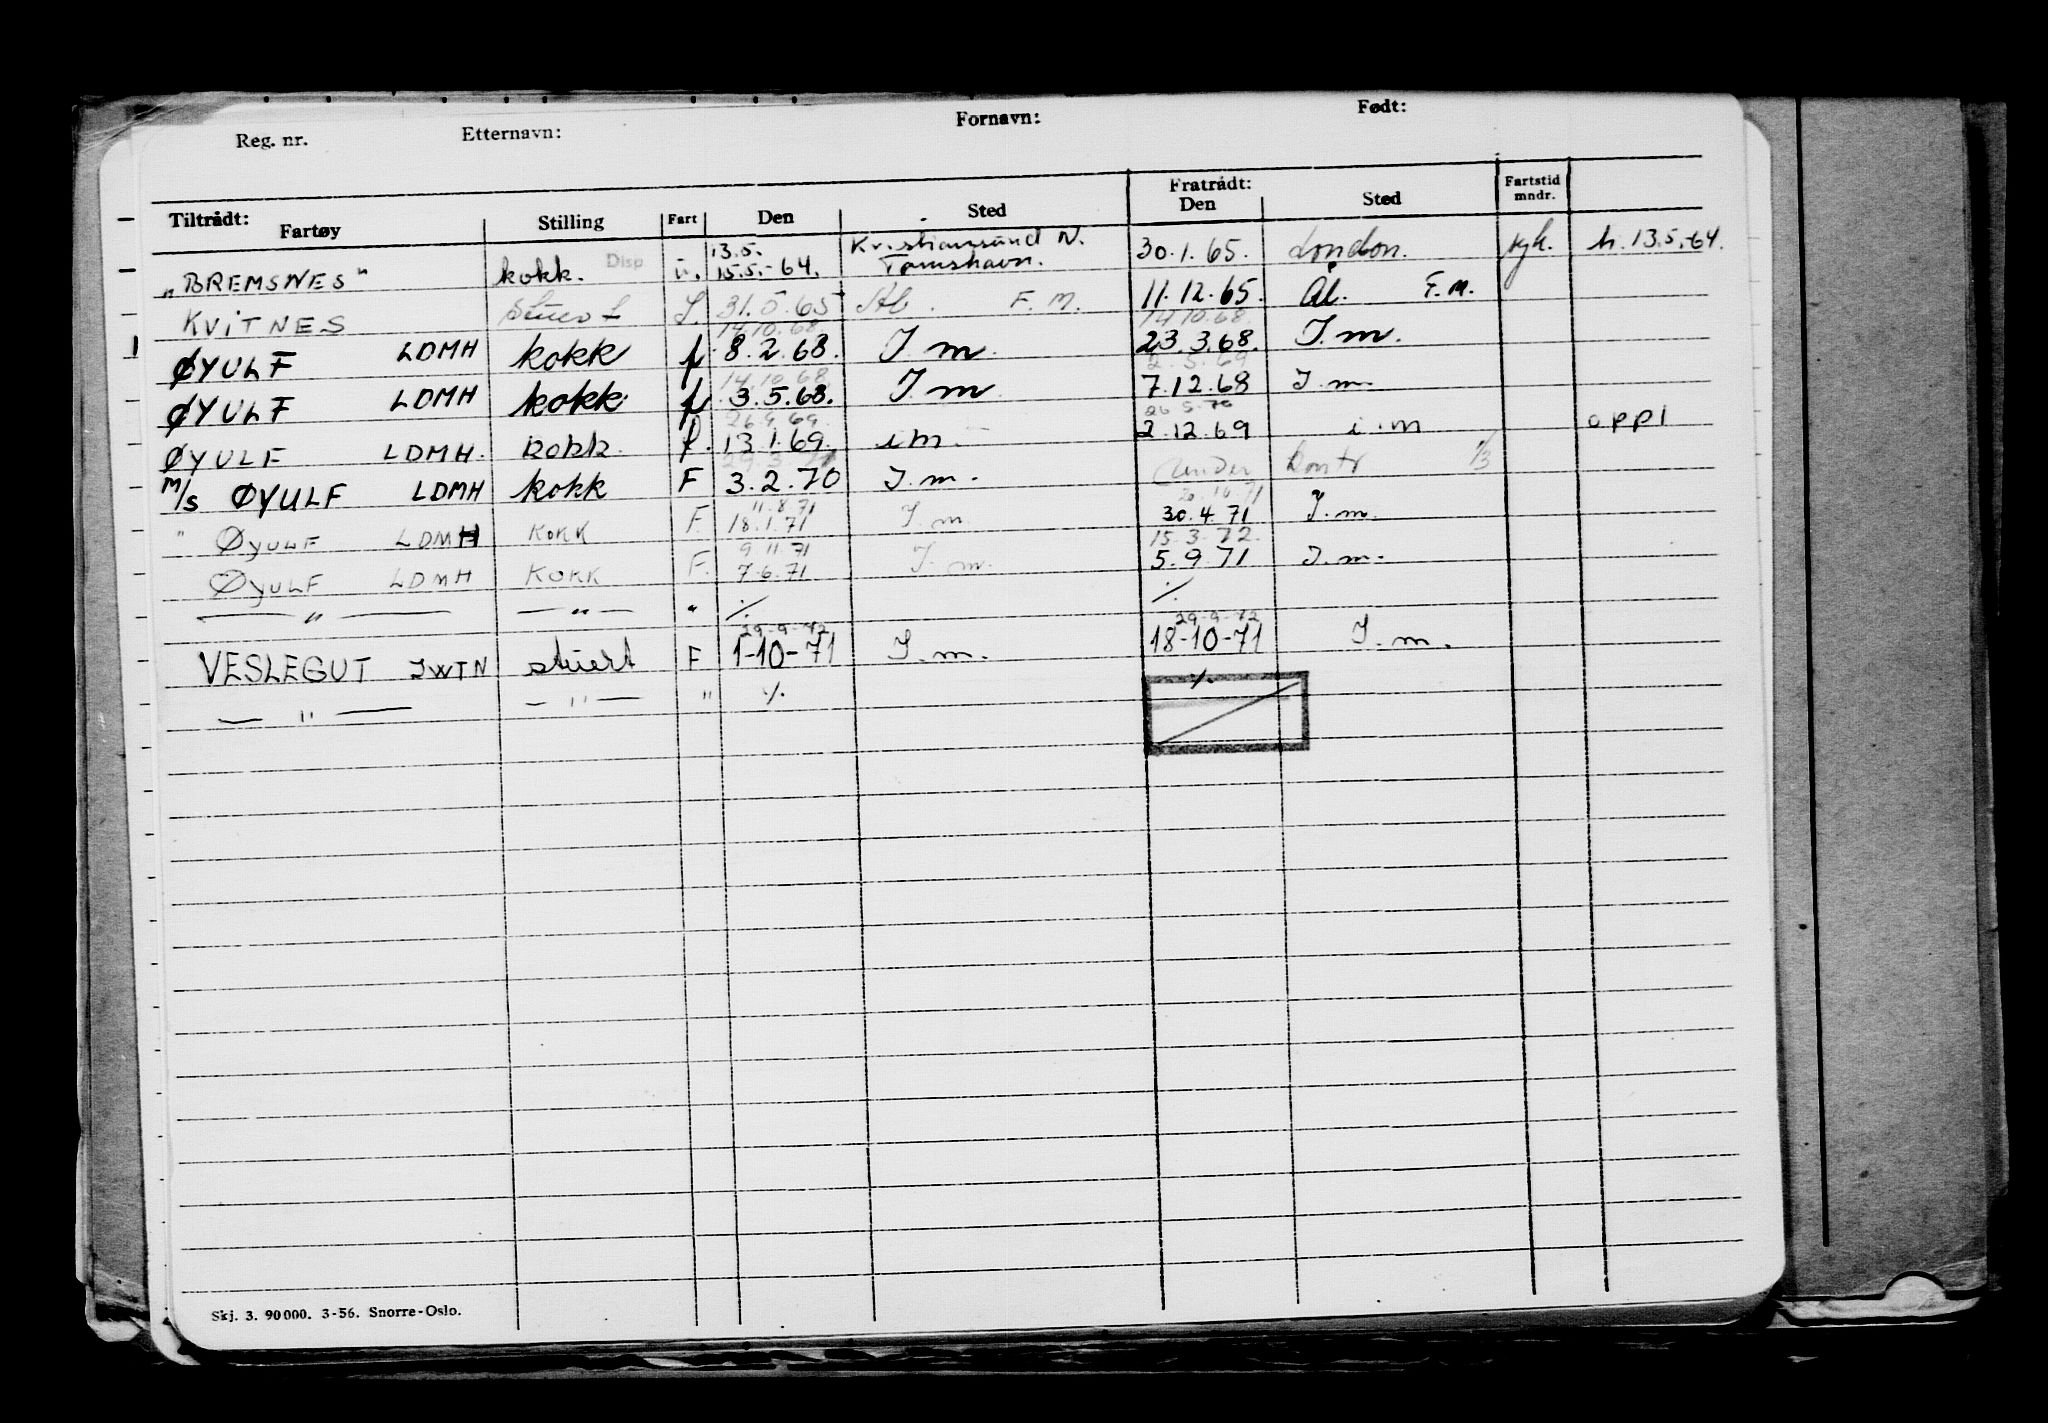 Reg. nr. Etternavn: Fornavn: Født:
Tiltrådt: Fratrådt:
Fartøy Stilling Fart Den Sted Den Sted Fartstid mndr.
13.5. Kristiansund N.
"BREMSNES" kokk. Disp u. 15.5.-64. Tornshavn. 30.1.65. London. syk. h. 13.5.-64.
KVITNES Stuert 31.5.65 Ål. F.M. 11.12.65. Ål. F.M.
14.10.68 14.10.68.
ØYULF LDMH kokk f. 8.2.68. I.m. 23.3.68. I.m.
14.10.68. 2.5.69
ØYULF LDMH kokk f 3.5.68. I.m 7.12.68 I.m.
26.9.69. 26.5.70
ØYULF LDMH. kokk. f. 13.1.69. im 2.12.69 i.m oppl
M/S ØYULF LDMH kokk F 3.2.70 I.m. (under kontr 1/3
11.8.71
" ØYULF LDMH KOKK F. 18.1.71 I.m. 30.4.71 I.m.
9.11.71 15.3.72.
ØYULF LDMH KOKK F. 7.6.71 I.m. 5.9.71 I.m.
— " — — " — " ./. ./.
29-9-72 29-9-72
VESLEGUT JWTN stuert F 1-10-71 I.m. 18-10-71 I.m.
— " — — " — " ./. ./.
Skj. 3. 90000. 3-56. Snorre-Oslo.